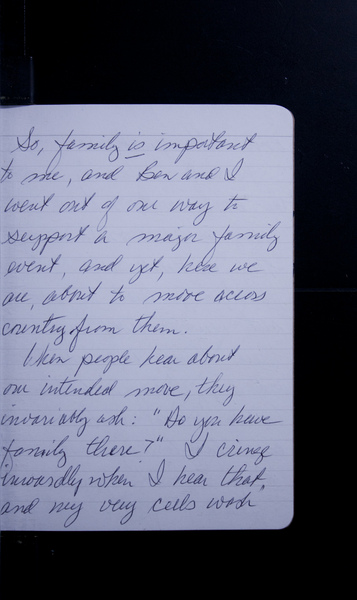 So, family is important
to me, and Ben and I
went out of our way to
support a major family
event, and yet, here we
are, about to move across
country from them.
When people hear about
our intended move, they
invariably ask: "Do you have
family there?" I cringe
inwardly when I hear that,
and my very cells wash